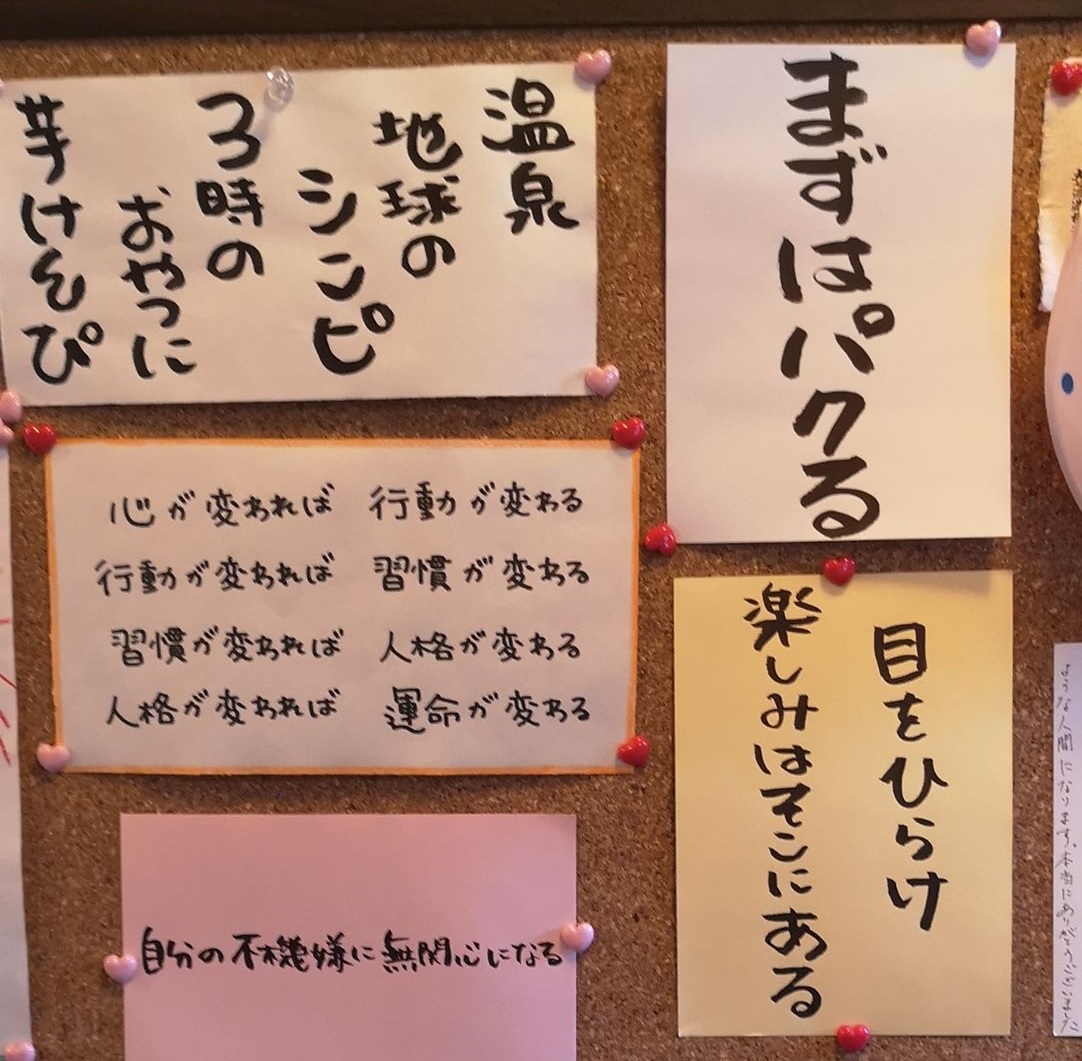 温泉
地球の
シンピ
3時の
おやつに
芋けんぴ
まずはパクる
心が変われば 行動が変わる
行動が変われば 習慣が変わる
習慣が変われば 人格が変わる
人格が変われば 運命が変わる
目をひらけ
楽しみはそこにある
自分の不機嫌に無関心になる
ような人間になります。本当にありがとうございました